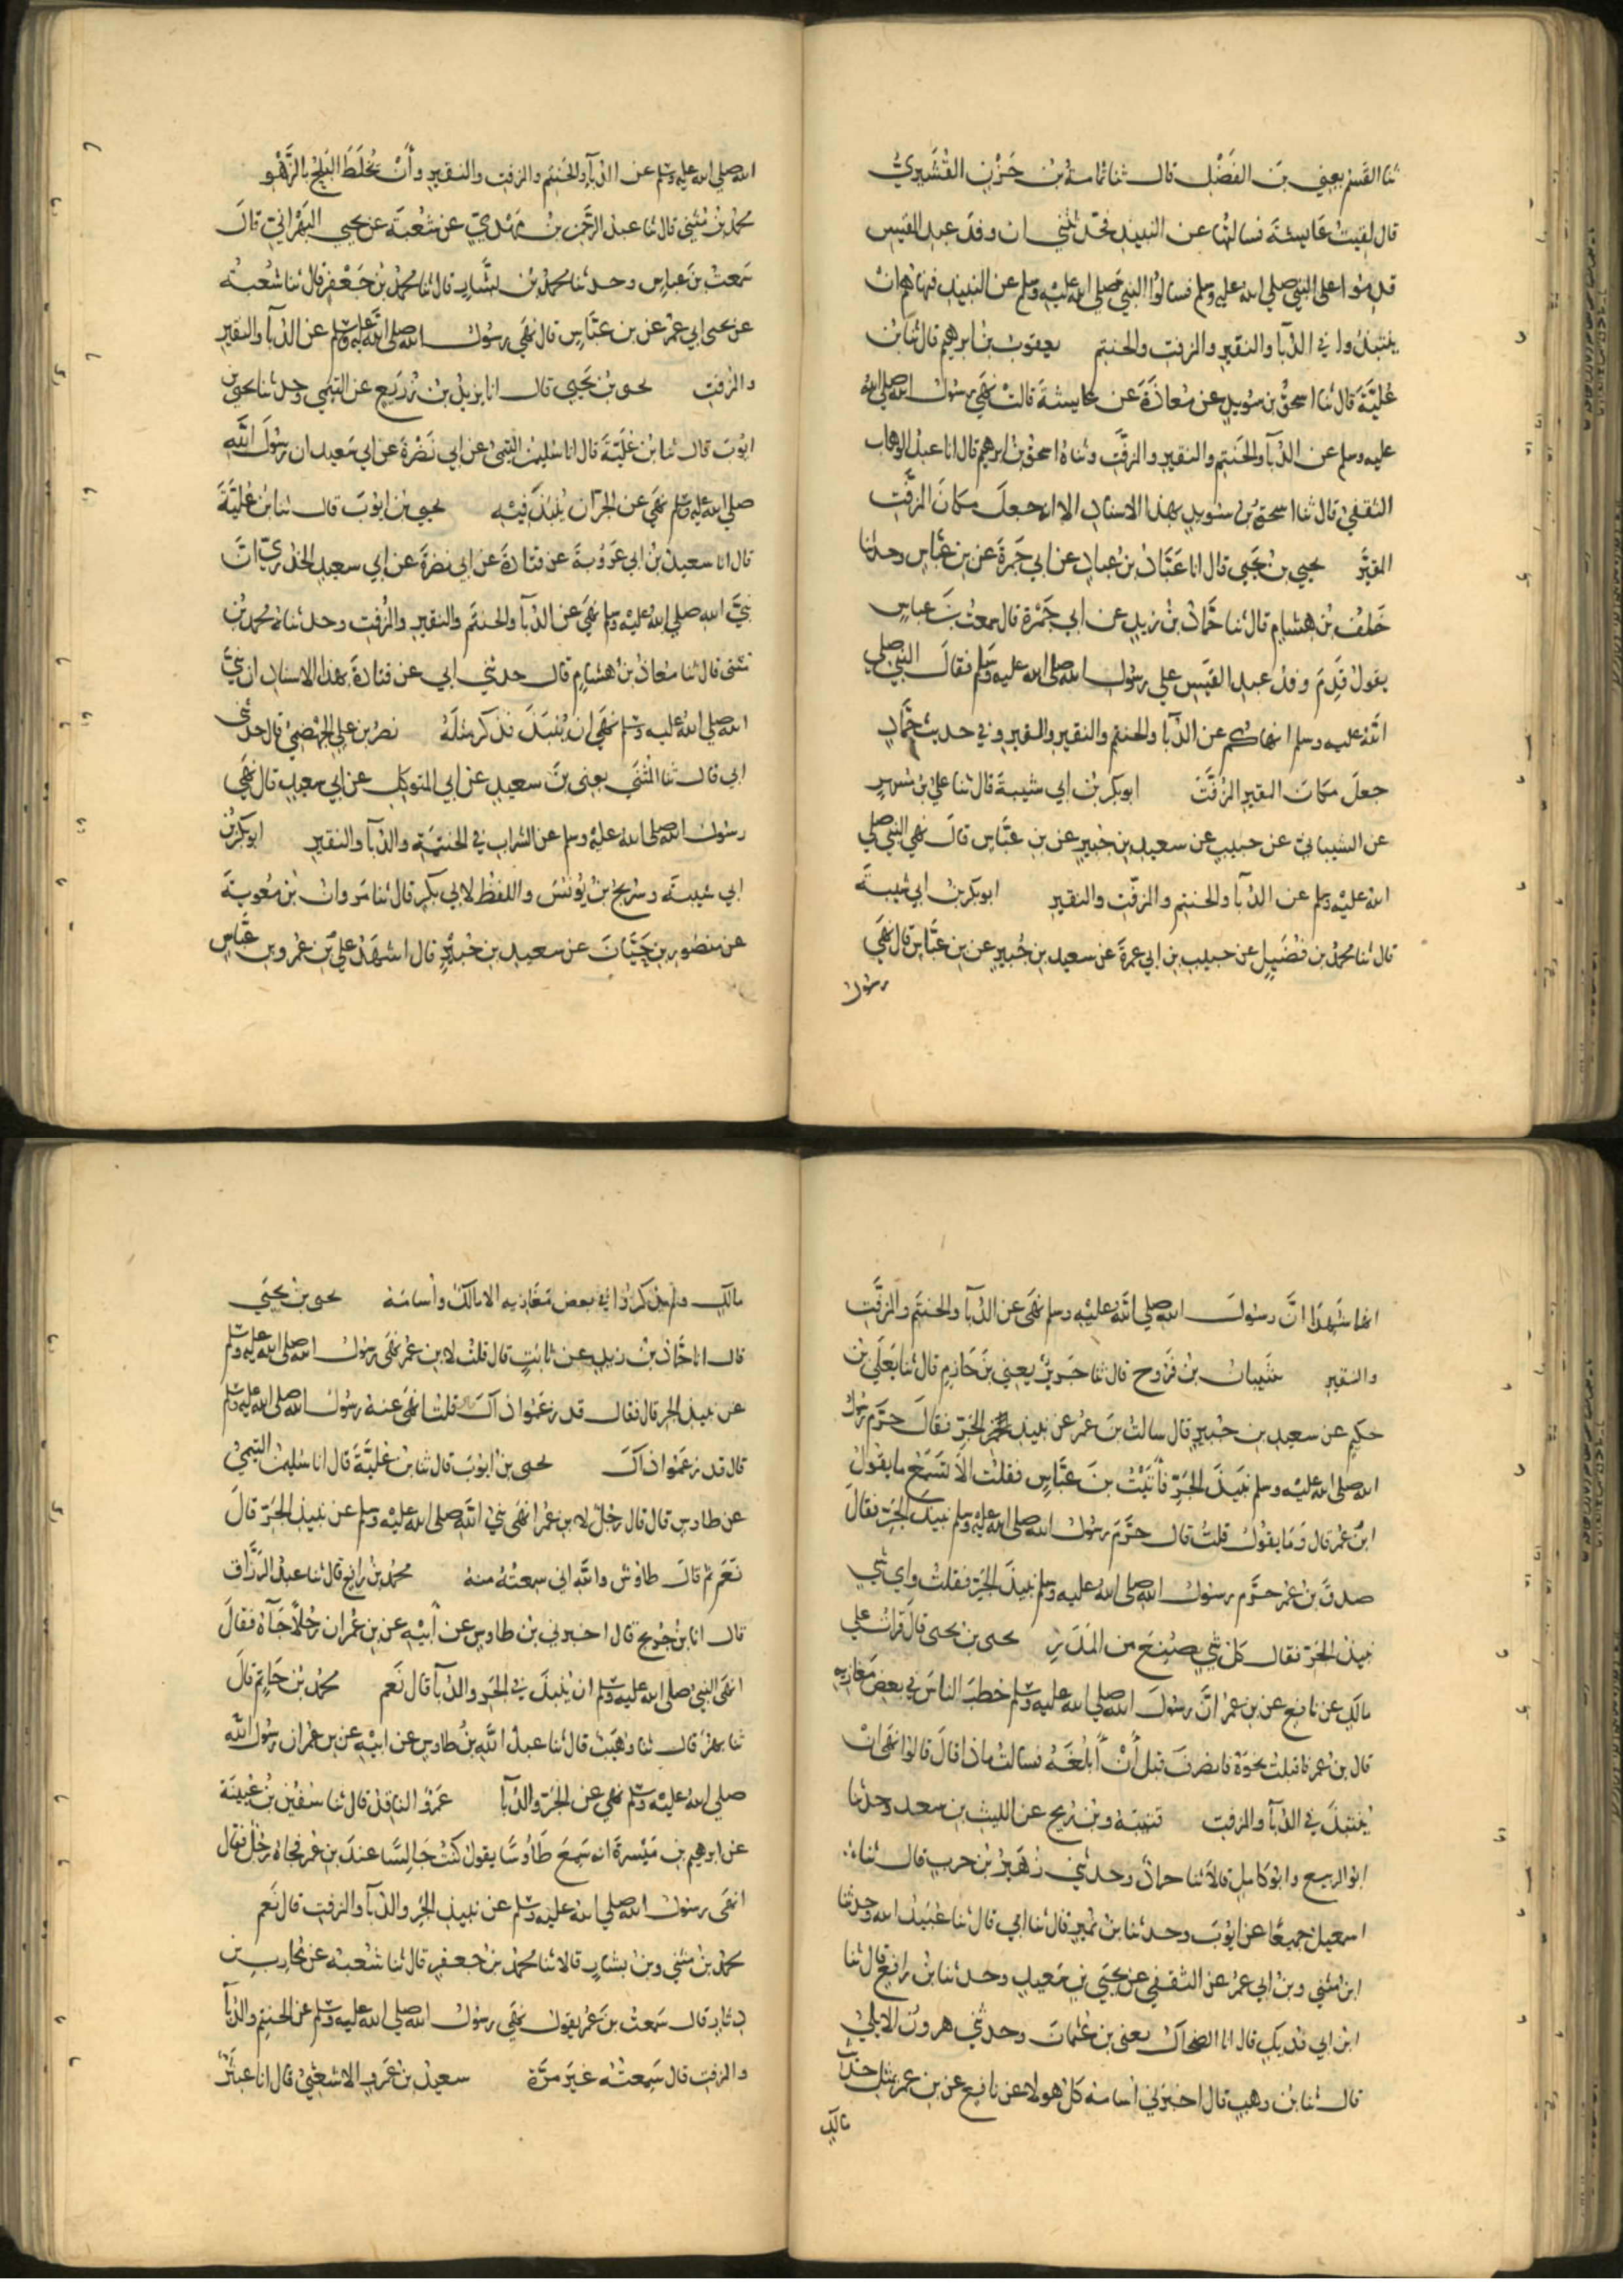 ثنا القسم يعني بن الفضل قال ثنا ثمامة بن حزن القشيري
قال لقيت عايشة فسالتها عن النبيذ فحدثتني ان وفد عبد القيس
قدموا على النبي صلي الله عليه وسلم فسالوا النبي صلي الله عليه وسلم عن النبيذ فنهاهم ان
ينتبذوا في الدبآ والنقير والمزفت والحنتم يعقوب بن ابرهيم قال ثنا بن
علية قال ثنا اسحق بن سويد عن معاذة عن عايشة قالت نهي رسول الله صلي الله
عليه وسلم عن الدبآ والحنتم والنقير والمزفت وثناه اسحق بن ابرهيم قال انا عبد الوهاب
الثقفي قال ثنا اسحق بن سويد بهذا الاسناد الا انه جعل مكان المزفت
المقير يحيي بن يحيى قال انا عباد بن عباد عن ابي جمرة عن بن عباس وحدثنا
خلف بن هشام قال ثنا حماد بن زيد عن ابي جمرة قال سمعت بن عباس
يقول قدم وفد عبد القيس علي رسول الله صلى الله عليه وسلم فقال النبي صلي
الله عليه وسلم انهاكم عن الدبآ والحنتم والنقير والمقير وفي حديث حماد
جعل مكان المقير المزفت ابو بكر بن ابي شيبة قال ثنا علي بن مسهر
عن الشيباني عن حبيب عن سعيد بن جبير عن بن عباس قال نهي النبي صلي
الله عليه وسلم عن الدبآ والحنتم والمزفت والنقير ابو بكر بن ابي شيبة
قال ثنا محمد بن فضيل عن حبيب بن ابي عمرة عن سعيد بن جبير عن بن عباس قال نهي
رسول
الله صلي الله عليه وسلم عن الدبآ والحنتم والمزفت والنقير وأن يخلط البلح بالزهو
محمد بن مثني قال ثنا عبد الرحمن بن مهدي عن شعبة عن يحيي البهراني قال
سمعت بن عباس وحدثنا محمد بن بشار قال ثنا محمد بن جعفر قال ثنا شعبة
عن يحيى ابي عمر عن بن عباس قال نهي رسول الله صلى الله عليه وسلم عن الدبآ والنقير
والمزفت يحيى بن يحيي قال انا يزيد بن زريع عن التيمي وحدثنا يحيي بن
ايوب قال ثنا بن علية قال انا سليمن التيمي عن ابي نضرة عن ابي سعيد ان رسول الله
صلي الله عليه وسلم نهي عن الجر ان ينبذ فيه يحيي بن ايوب قال ثنا بن علية
قال انا سعيد بن ابي عروبة عن قتادة عن ابي نضرة عن ابي سعيد الخدري ان
نبي الله صلي الله عليه وسلم نهي عن الدبآ والحنتم والنقير والمزفت وحدثناه محمد بن
مثنى قال ثنا معاذ بن هشام قال حدثني ابي عن قتادة بهذا الاسناد ان نبي
الله صلي الله عليه وسلم نهي ان ينبذ فذكر مثله نصر بن علي الجهضمي قال حدثني
ابي قال ثنا المثني يعني بن سعيد عن ابي المتوكل عن ابي سعيد قال نهي
رسول الله صلى الله عليه وسلم عن الشراب في الحنتمة والدبآ والنقير ابو بكر بن
ابي شيبة وسريج بن يونس واللفظ لابي بكر قال ثنا مروان بن معوية
عن منصور بن حيان عن سعيد بن جبير قال اشهد علي بن عمر وبن عباس
انهما شهدا ان رسول الله صلي الله عليه وسلم نهي عن الدبآ والحنتم والمزفت
والنقير شيبان بن فروح قال ثنا جرير يعني بن حازم قال ثنا يعلي بن
حكيم عن سعيد بن جبير قال سالت بن عمر عن نبيذ الجر فقال حرم رسول
الله صلى الله عليه وسلم نبيذ الجر فأتيت بن عباس فقلت الا تسمع ما يقول
ابن عمر قال وما يقول قلت قال حرم رسول الله صلى الله عليه وسلم نبيذ الجر فقال
صدق بن عمر حرم رسول الله صلى الله عليه وسلم نبيذ الجر فقلت واي شي
نبيذ الجر فقال كل شي يصنع من المدر يحيى بن يحيى قال قرات علي
مالك عن نافع عن بن عمر ان رسول الله صلي الله عليه وسلم خطب الناس في بعض مغازيه
قال بن عمر فاقبلت نحوه فانصرف قبل أن أبلغه فسالت ماذا قال قالوا نهي ان
ينتبذ في الدبآ والمزفت قتيبة وبن رمح عن الليث بن سعد وحدثنا
ابو الربيع وابو كامل قالا ثنا حماد وحدثني زهير بن حرب قال ثنا
اسمعيل جميعا عن ايوب وحدثنا بن نمير قال ثنا ابي قال ثنا عبيد الله وحدثنا
ابن مثني وبن ابي عمر عن الثقفي عن يحيي بن سعيد وحدثنا بن رافع قال ثنا
ابن ابي فديك قال انا الضحاك يعني بن عثمان وحدثني هرون الايلي
قال ثنا بن وهب قال اخبرني اسامة كل هولا عن نافع عن بن عمر بمثل حديث
مالك
مالك ولم يذكروا في بعض مغازيه الا مالك وأسامة يحيى بن يحيي
قال انا حماد بن زيد عن ثابت قال قلت لابن عمر نهي رسول الله صلى الله عليه وسلم
عن نبيذ الجر قال فقال قد زعموا ذاك قلت انهي عنه رسول الله صلى الله عليه وسلم
قال قد زعموا ذاك يحيى بن ايوب قال ثنا بن علية قال انا سليمن التيمي
عن طاوس قال قال رجل لابن عمر انهي نبي الله صلى الله عليه وسلم عن نبيذ الجر قال
نعم ثم قال طاوس والله اني سمعته منه محمد بن رافع قال ثنا عبد الرزاق
قال انا بن جريج قال اخبرني بن طاوس عن أبيه عن بن عمر ان رجلا جاه فقال
انهي النبي صلى الله عليه وسلم ان ينبذ في الجر والدبآ قال نعم محمد بن حاتم قال
ثنا بهز قال ثنا وهيب قال ثنا عبد الله بن طاوس عن ابيه عن بن عمر ان رسول الله
صلي الله عليه وسلم نهي عن الجر والدبآ عمرو الناقد قال ثنا سفين بن عيينة
عن ابرهيم بن ميسرة انه سمع طاوسا يقول كنت جالسا عند بن عمر فجاه رجل فقال
انهى رسول الله صلي الله عليه وسلم عن نبيذ الجر والدبآ والمزفت قال نعم
محمد بن مثني وبن بشار قالا ثنا محمد بن جعفر قال ثنا شعبة عن محارب بن
دثار قال سمعت بن عمر يقول نهي رسول الله صلي الله عليه وسلم عن الحنتم والدبآ
والمزفت قال سمعته غير مرة سعيد بن عمرو الاشعثي قال انا عبثر